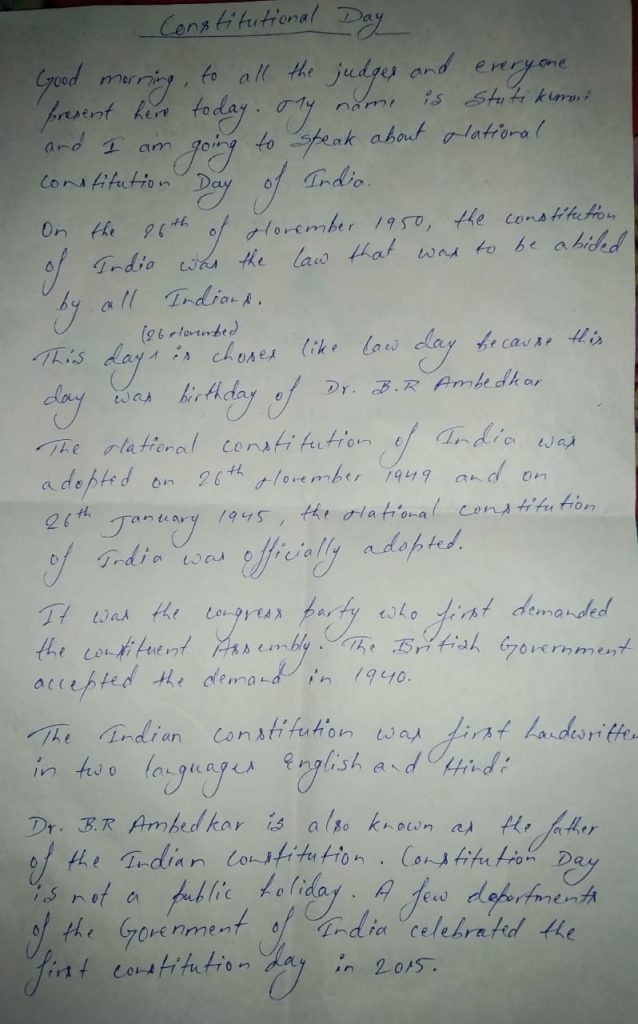 Constitutional Day
Good morning, to all the judges and everyone
present here today. My name is Stuti kumari
and I am going to speak about National
constitution Day of India.
On the 26th of November 1950, the constitution
of India was the law that was to be abided
by all Indians.
(26 November)
This day is choses like law day because this
day was birthday of Dr. B.R Ambedkar
The National constitution of India was
adopted on 26th November 1949 and on
26th January 1945, the National constitution
of India was officially adopted.
It was the congress party who first demanded
the constituent Assembly. The British Government
accepted the demand in 1940.
The Indian constitution was first handwritten
in two languages English and Hindi
Dr. B.R Ambedkar is also known as the father
of the Indian constitution. Constitution Day
is not a public holiday. A few departments
of the Government of India celebrated the
first constitution day in 2015.